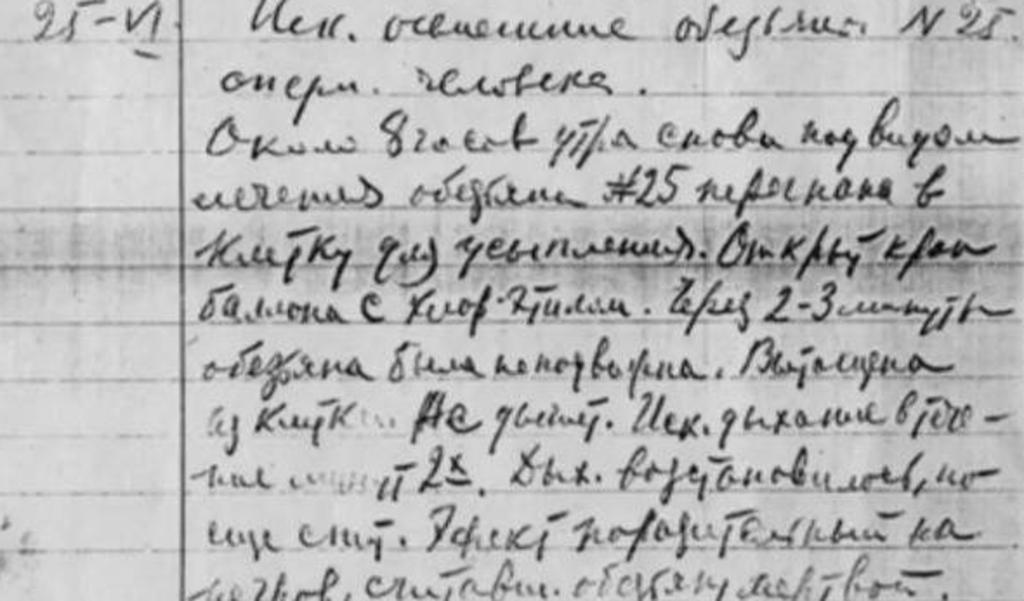 25-VI Иск. осеменение обезьян. N 25.
сперм. человека.
Около 8 часов утра снова под видом
лечения обезьяна #25 перегнана в
клетку для усыпления. Открыт кран
баллона с хлор-этилом. Через 2-3 минуты
обезьяна была неподвижна. Вытащена
из клетки. Не дышит. Иск. дыхание в тече-
ние минут 2х. Дых. возстановилось, но
еще спит. Эфект поразительный на
негров, считавш. обезьяну мертвой.